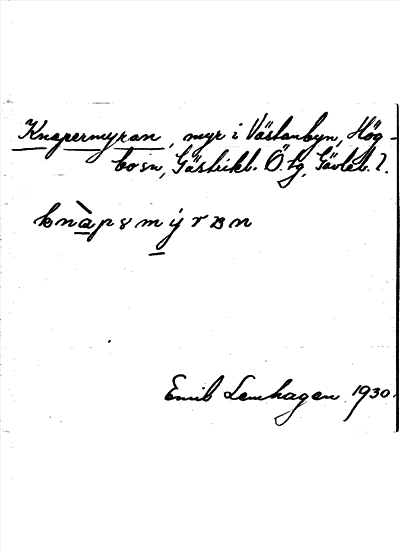 Knapermyran, myr i Västanbyn, Hög-
bo sn, Gästrikl. Ö. tg, Gävleb. l.
knàpɤmýrɐn
Emil Lenhagen 1930.